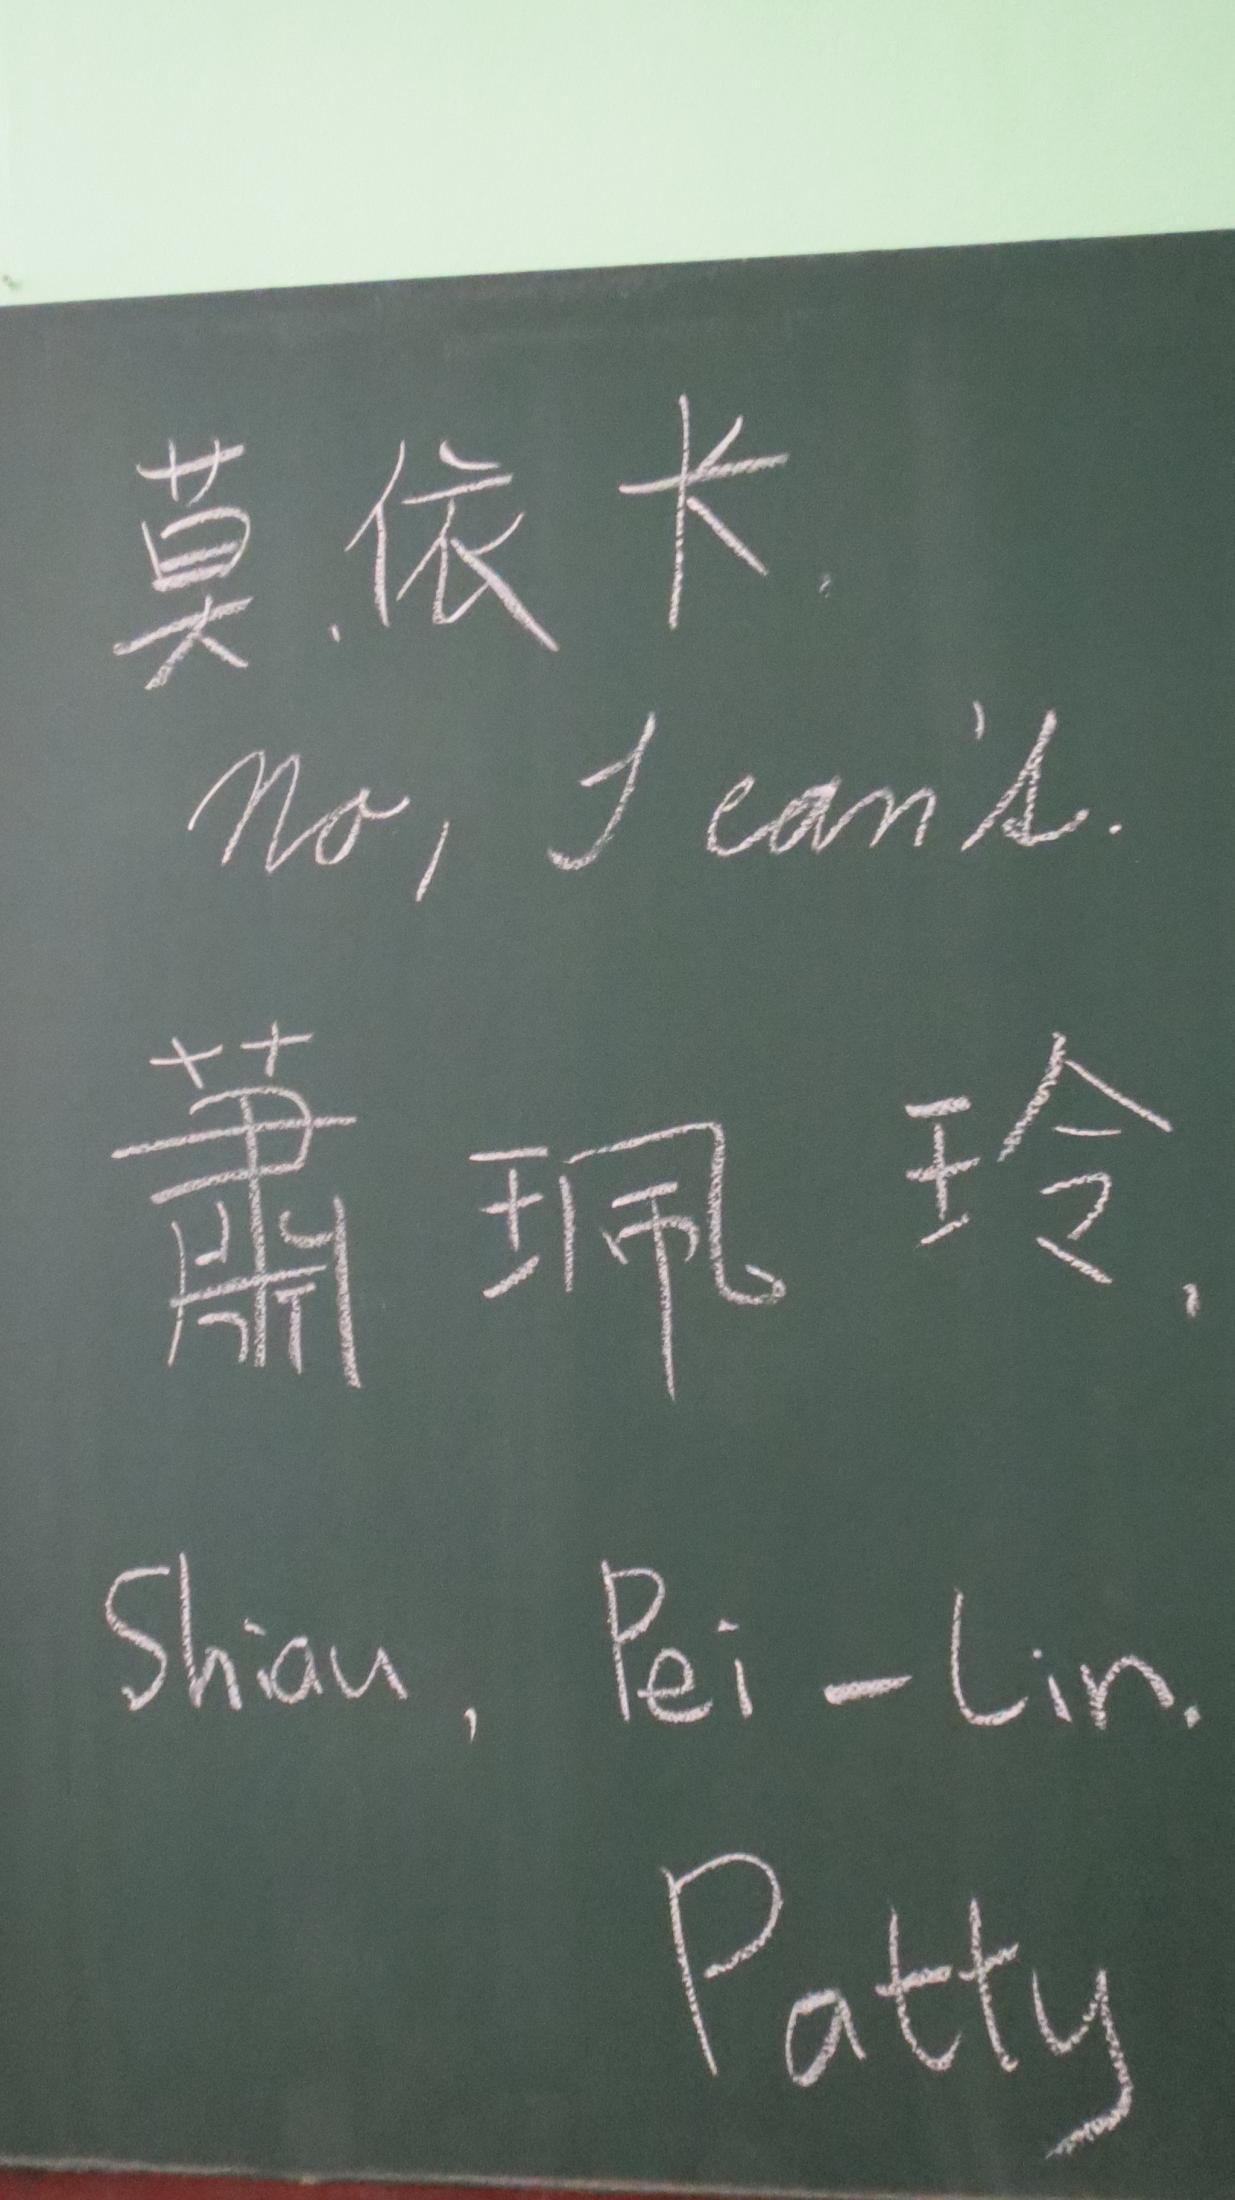 莫.依卡.
No, I can't.
蕭珮玲.
Shiau, Pei-Lin.
Patty